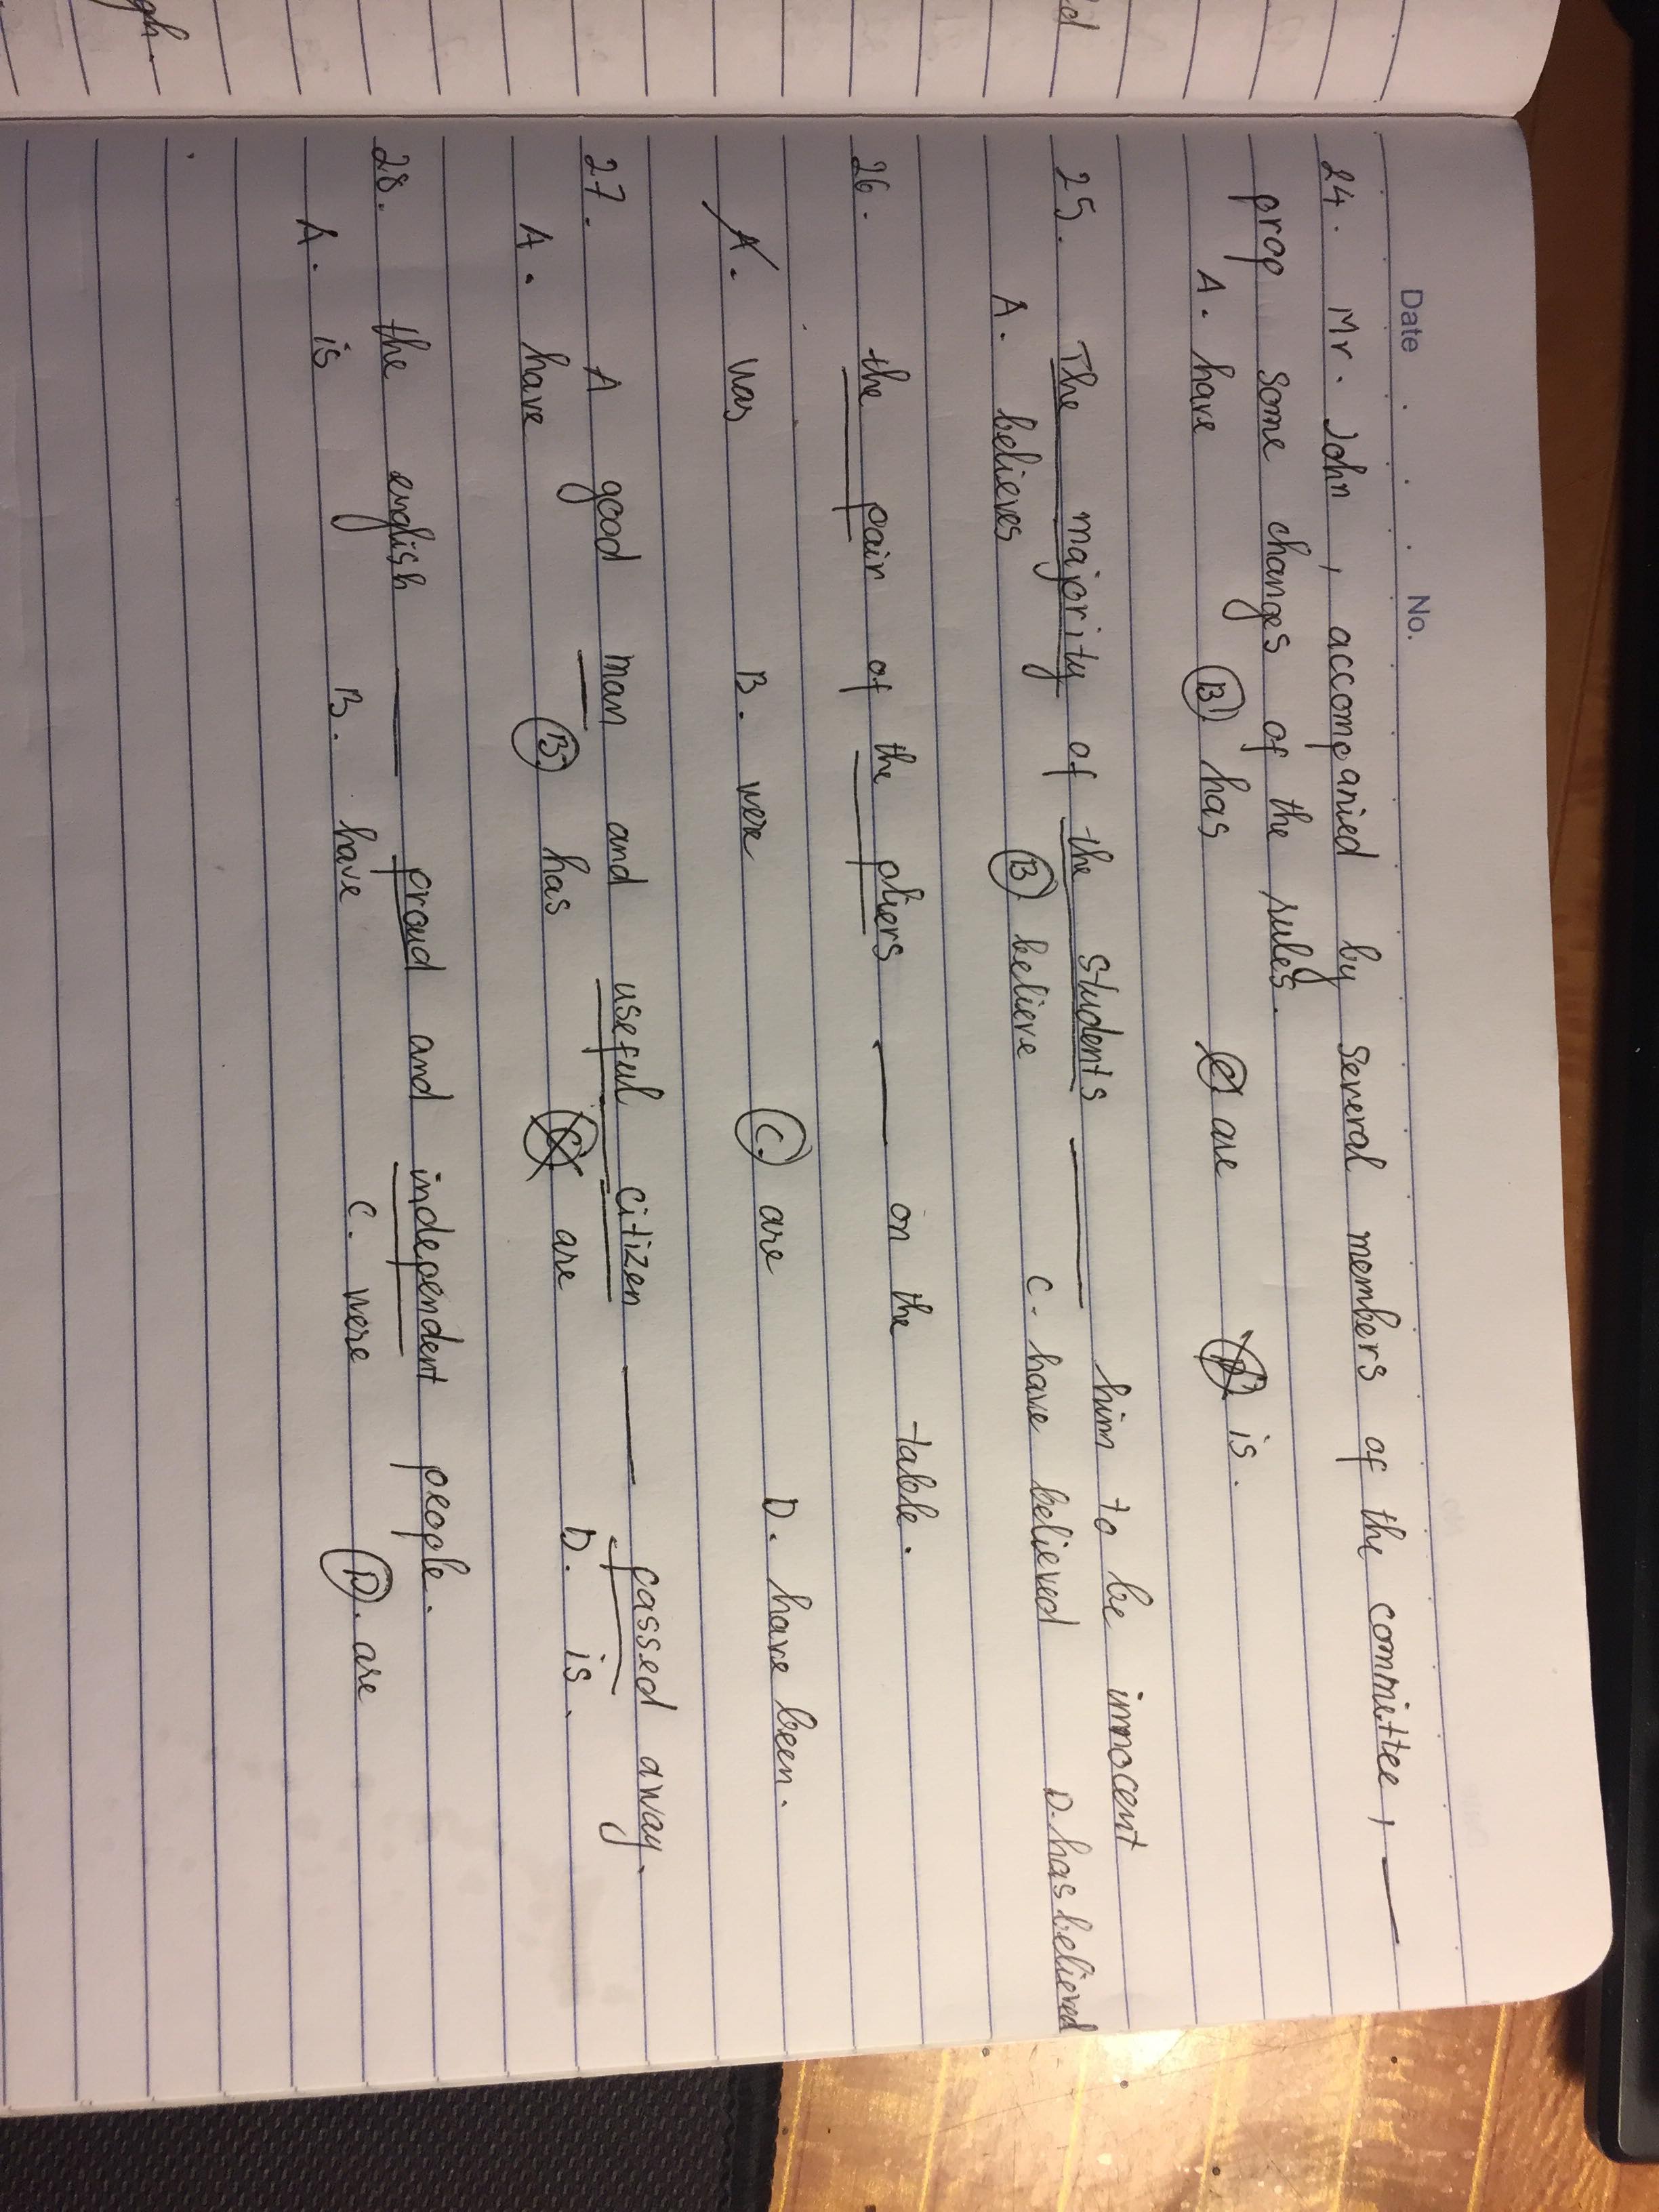 ed
gh.
Date No.
24. Mr. John, accompanied by several members of the committee, __
prop some changes of the rules.
A. have B. has C. are D. is.
25. The majority of the students __ him to be innocent
A. believes B. believe C. have believed D. has believed
26. the pair of the pliers __ on the table.
A. was B. were C. are D. have been.
27. A good man and useful citizen __ passed away.
A. have B. has C. are D. is.
28. the english __ proud and independent people.
A. is B. have C. were D. are